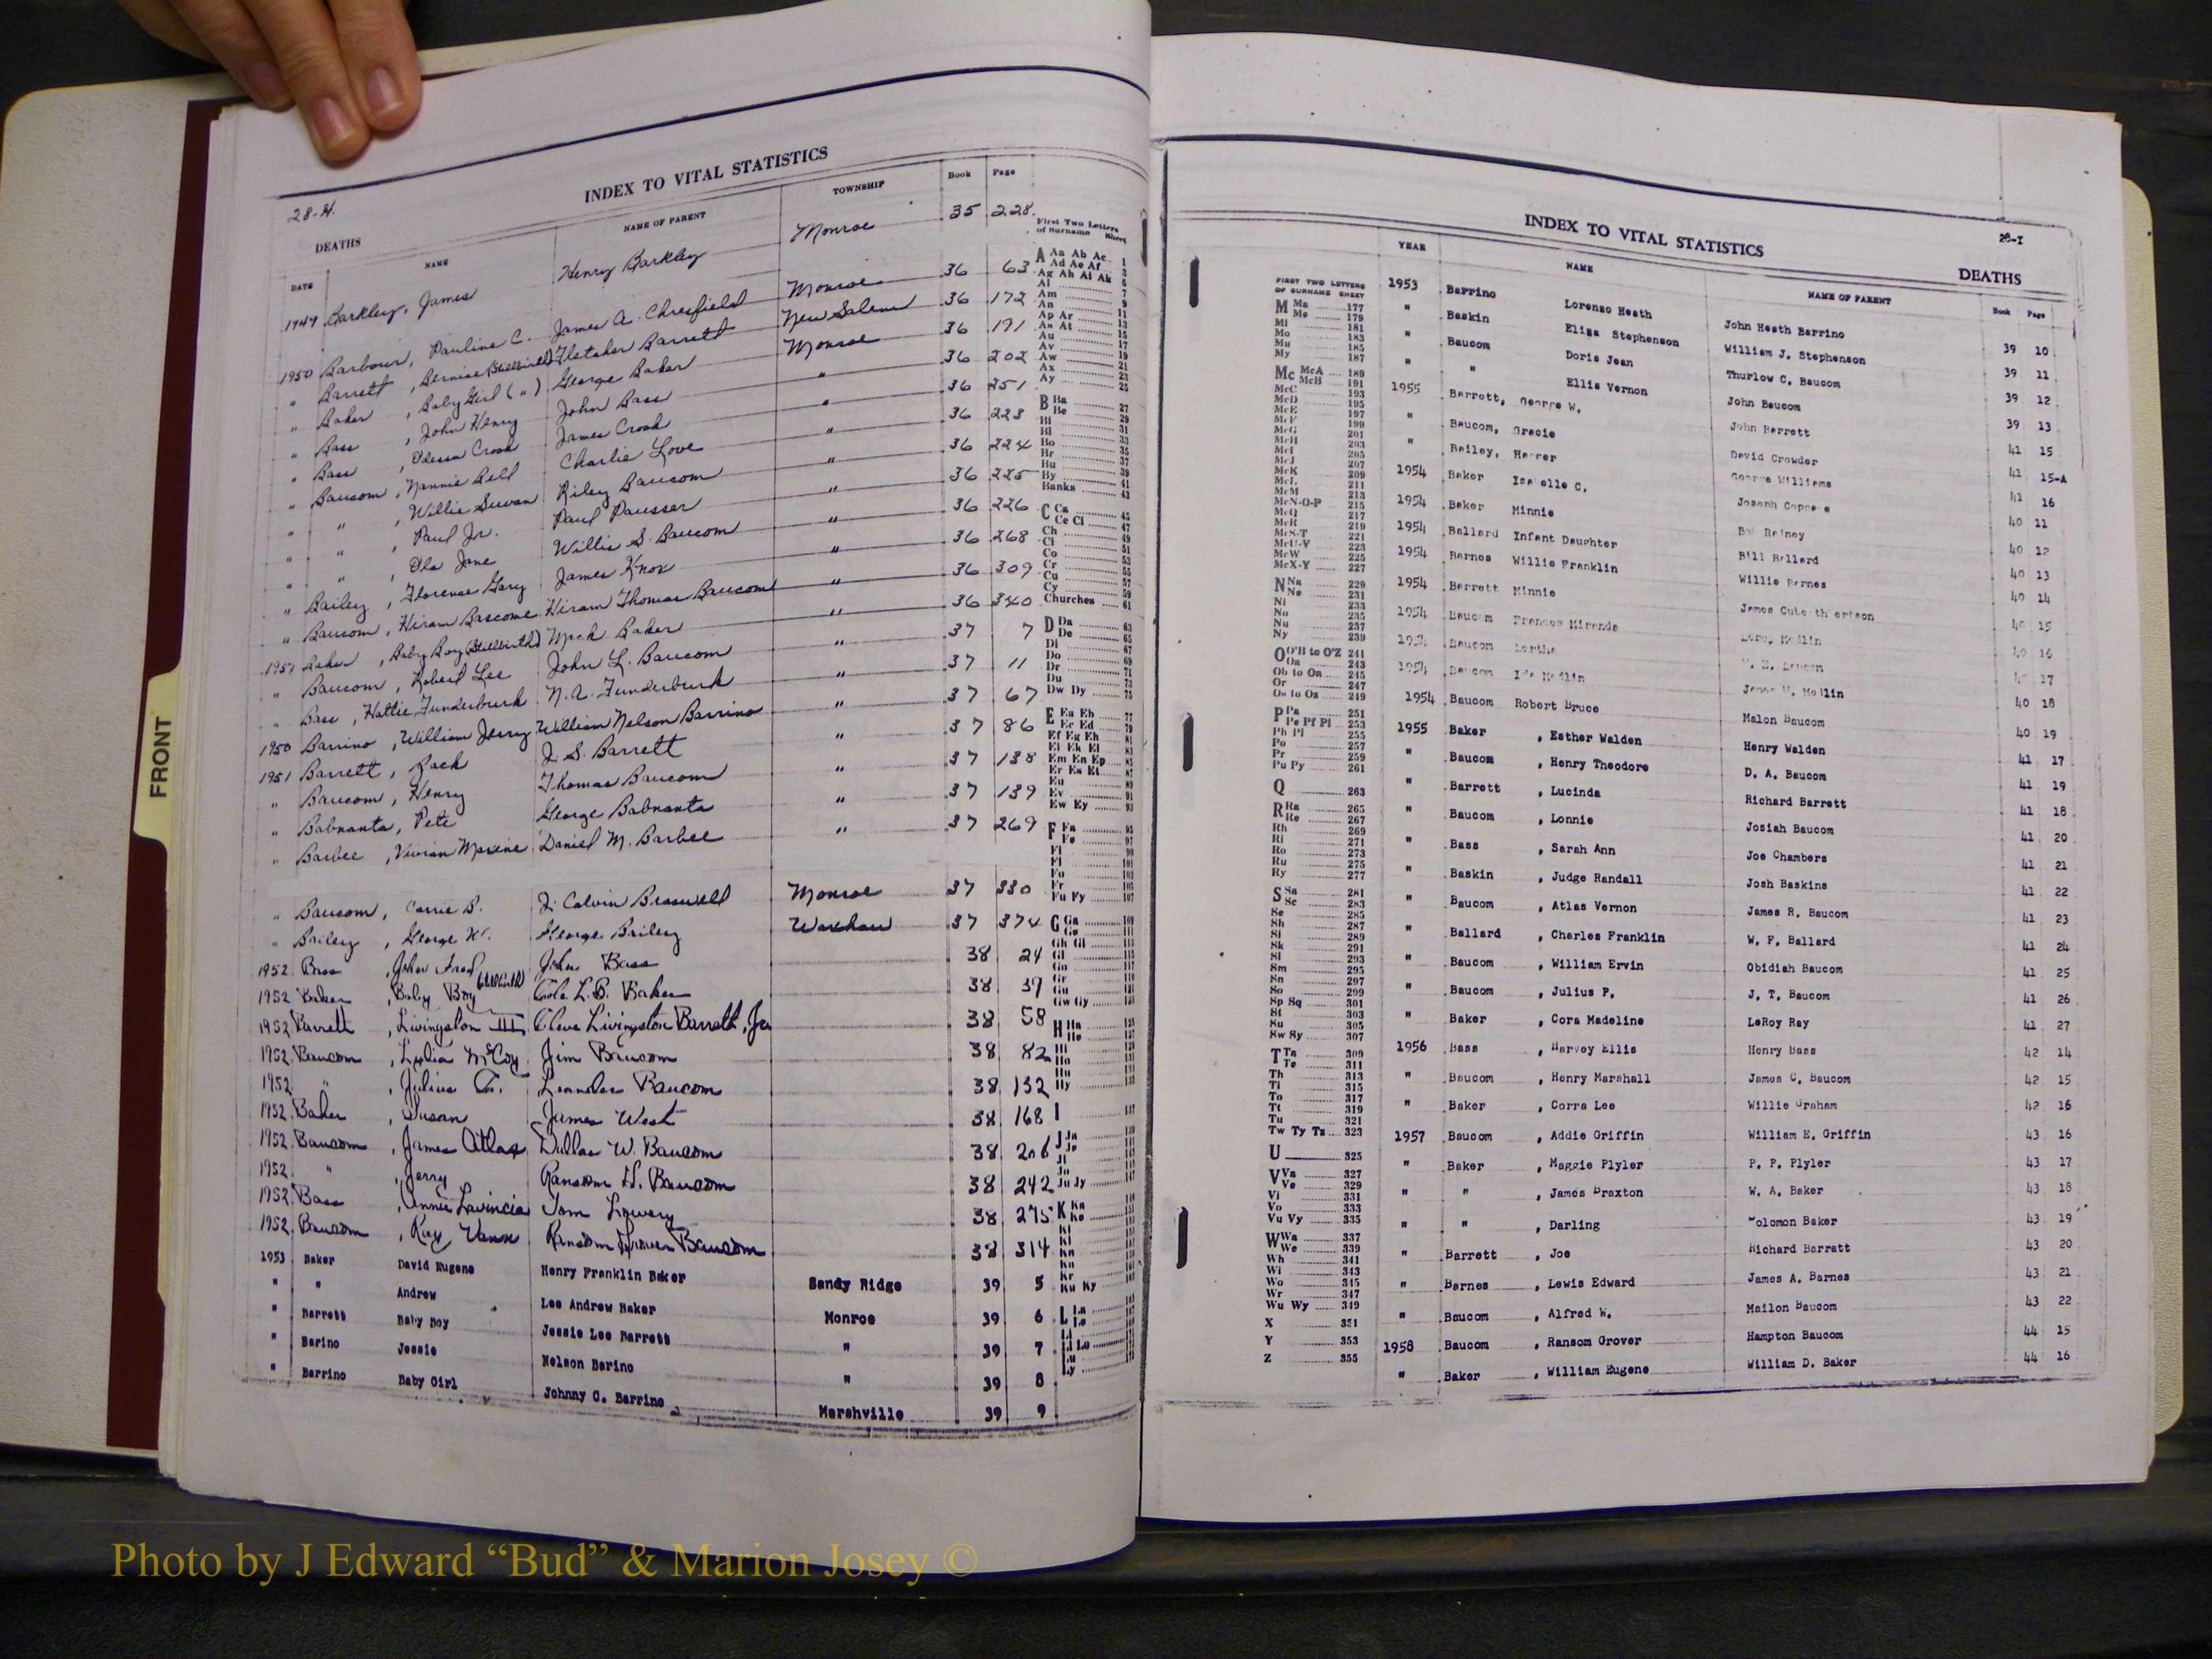 FRONT
28-H.
INDEX TO VITAL STATISTICS
DEATHS
DATE NAME NAME OF PARENT TOWNSHIP Book Page
1949 Barkley, James Henry Barkley Monroe 35 228
1950 Barbour, Pauline C. James A. Chresfield Monroe 36 63
" Barrett, Bernice (Stillbirth) Fletcher Barrett New Salem 36 172
" Baker, Baby Girl (") George Baker Monroe 36 191
" Bass, John Henry John Bass " 36 202
" Bass, Odessa Crook James Crook " 36 251
" Baucom, Nannie Bell Charlie Love " 36 223
" ", Willie Suvan Riley Baucom " 36 224
" ", Paul Jr. Paul Pausser " 36 225
" ", Ola Jane Willis S. Baucom " 36 226
" Bailey, Florence Gary James Knox " 36 268
" Baucom, Hiram Bascome Hiram Thomas Baucom " 36 309
1951 Baker, Baby Boy (Stillbirth) Mack Baker " 36 340
" Baucom, Robert Lee John L. Baucom " 37 7
" Bass, Hattie Funderburk N.A. Funderburk " 37 11
1950 Barrino, William Jerry William Nelson Barrino " 37 67
1951 Barrett, Zack J. S. Barrett " 37 86
" Baucom, Henry Thomas Baucom " 37 138
" Babnanta, Pete George Babnanta " 37 139
" Barbee, Vivian Maxine Daniel M. Barbee " 37 269
" Baucom, Carrie B. J. Calvin Braswell Monroe 37 330
" Bailey, George W. George Bailey Waxhaw 37 374
1952 Bass, John Fred John Bass 38 24
1952 Baker, Baby Boy (Stillbirth) Cole L.B. Baker 38 39
1952 Barrett, Livingston III Cleve Livingston Barrett, Jr. 38 58
1952 Baucom, Lydia McCoy Jim Baucom 38 82
1952 ", Julius Leander Baucom 38 132
1952 Baker, Susan James West 38 168
1952 Baucom, James Atlas Dallas W. Baucom 38 206
1952 ", Jerry Ransom H. Baucom 38 242
1952 Bass, Annie Lavincia Tom Lowery 38 275
1952 Baucom, Ray Vann Ransom Grover Baucom 38 314
1953 Baker David Eugene Henry Franklin Baker Sandy Ridge 39 5
" " Andrew Lee Andrew Baker Monroe 39 6
" Barrett Baby Boy Jessie Lee Barrett " 39 7
" Barino Jessie Nelson Barino " 39 8
" Barrino Baby Girl Johnny C. Barrino Marshville 39 9
First Two Letters
of Surname Sheet
A Aa Ab Ac 1
Ad Ae Af 3
Ag Ah Ai Ak 5
Al 7
Am 9
An 11
Ap Ar 13
As At 15
Au 17
Av 19
Aw 21
Ax 23
Ay 25
B Ba 27
Be 29
Bi 31
Bl 33
Bo 35
Br 37
Bu 39
By 41
Banks 43
C Ca 45
Ce Ci 47
Ch 49
Cl 51
Co 53
Cr 55
Cu 57
Cy 59
Churches 61
D Da 63
De 65
Di 67
Do 69
Dr 71
Du 73
Dw Dy 75
E Ea Eb 77
Ec Ed 79
Ef Eg Eh 81
Ei Ek El 83
Em En Ep 85
Er Es Et 87
Eu 89
Ev 91
Ew Ey 93
F Fa 95
Fe 97
Fi 99
Fl 101
Fo 103
Fr 105
Fu Fy 107
G Ga 109
Ge 111
Gh Gi
Gl
Go
Gr
Gu
Gw Gy
H Ha
He
Hi
Ho
Hu
Hy
I
J Ja
Je
Ji
Jo
Ju Jy
K Ka
Ke
Ki
Kl
Kn
Ko
Kr
Ku Ky
L La
Le
Li
Ll Lo
Lu
Ly
INDEX TO VITAL STATISTICS
28-I
DEATHS
YEAR NAME NAME OF PARENT Book Page
1953 Barrino Lorenzo Heath John Heath Barrino 39 10
" Baskin Eliza Stephenson William J. Stephenson 39 11
" Baucom Doris Jean Thurlow C. Baucom 39 12
" " Ellis Vernon John Baucom 39 13
1955 Barrett, George W. John Barrett 41 15
" Baucom, Gracie David Crowder 41 15-A
" Bailey, George Williams 41 16
1954 Baker Isabelle C. Joseph 40 11
1954 Baker Minnie Rainey 40 12
1954 Ballard Infant Daughter Bill Ballard 40 13
1954 Barnes Willie Franklin Willie Barnes 40 14
1954 Barrett Minnie James 40 15
1954 Baucom Frances Miranda 40 16
1954 Baucom 17
1954 Baucom Ida Medlin James Medlin 40 18
1954 Baucom Robert Bruce Malon Baucom 40 19
1955 Baker, Esther Walden Henry Walden 41 17
" Baucom, Henry Theodore D. A. Baucom 41 19
" Barrett, Lucinda Richard Barrett 41 18
" Baucom, Lonnie Josiah Baucom 41 20
" Bass, Sarah Ann Joe Chambers 41 21
" Baskin, Judge Randall Josh Baskins 41 22
" Baucom, Atlas Vernon James R. Baucom 41 23
" Ballard, Charles Franklin W. F. Ballard 41 24
" Baucom, William Ervin Obidiah Baucom 41 25
" Baucom, Julius P. J. T. Baucom 41 26
" Baker, Cora Madeline LeRoy Ray 41 27
1956 Bass, Harvey Ellis Henry Bass 42 14
" Baucom, Henry Marshall James C. Baucom 42 15
" Baker, Corra Lee Willie Graham 42 16
1957 Baucom, Addie Griffin William E. Griffin 43 16
" Baker, Maggie Plyler P. P. Plyler 43 17
" ", James Braxton W. A. Baker 43 18
" ", Darling Solomon Baker 43 19
" Barrett, Joe Richard Barratt 43 20
" Barnes, Lewis Edward James A. Barnes 43 21
" Baucom, Alfred W. Mailon Baucom 43 22
1958 Baucom, Ransom Grover Hampton Baucom 44 15
" Baker, William Eugene William D. Baker 44 16
FIRST TWO LETTERS
OF SURNAME SHEET
M Ma 177
Me 179
Mi 181
Mo 183
Mu 185
My 187
Mc McA 189
McB 191
McC 193
McD 195
McE 197
McF 199
McG 201
McH 203
McI 205
McJ 207
McK 209
McL 211
McM 213
McN-O-P 215
McQ 217
McR 219
McS-T 221
McU-V 223
McW 225
McX-Y 227
N Na 229
Ne 231
Ni 233
No 235
Nu 237
Ny 239
O O'B to O'Z 241
Oa 243
Ob to On 245
Or 247
Os to Oz 249
P Pa 251
Pe Pf Pl 253
Ph Pi 255
Po 257
Pr 259
Pu Py 261
Q 263
R Ra 265
Re 267
Rh 269
Ri 271
Ro 273
Ru 275
Ry 277
S Sa 281
Sc 283
Se 285
Sh 287
Si 289
Sk 291
Sl 293
Sm 295
Sn 297
So 299
Sp Sq 301
St 303
Su 305
Sw Sy 307
T Ta 309
Te 311
Th 313
Ti 315
To 317
Tt 319
Tu 321
Tw Ty Ts 323
U 325
V Va 327
Ve 329
Vi 331
Vo 333
Vu Vy 335
W Wa 337
We 339
Wh 341
Wi 343
Wo 345
Wr 347
Wu Wy 349
X 351
Y 353
Z 355
Photo by J Edward “Bud” & Marion Josey ©